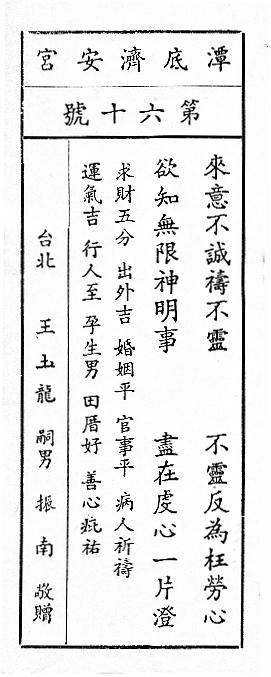 潭底濟安宮
第六十號
來意不誠禱不靈　不靈反為枉勞心
欲知無限神明事　盡在虔心一片澄
求財五分　出外吉　婚姻平　官事平　病人祈禱
運氣吉　行人至　孕生男　田厝好　善心庇祐
台北　王土龍　嗣男　振南　敬贈